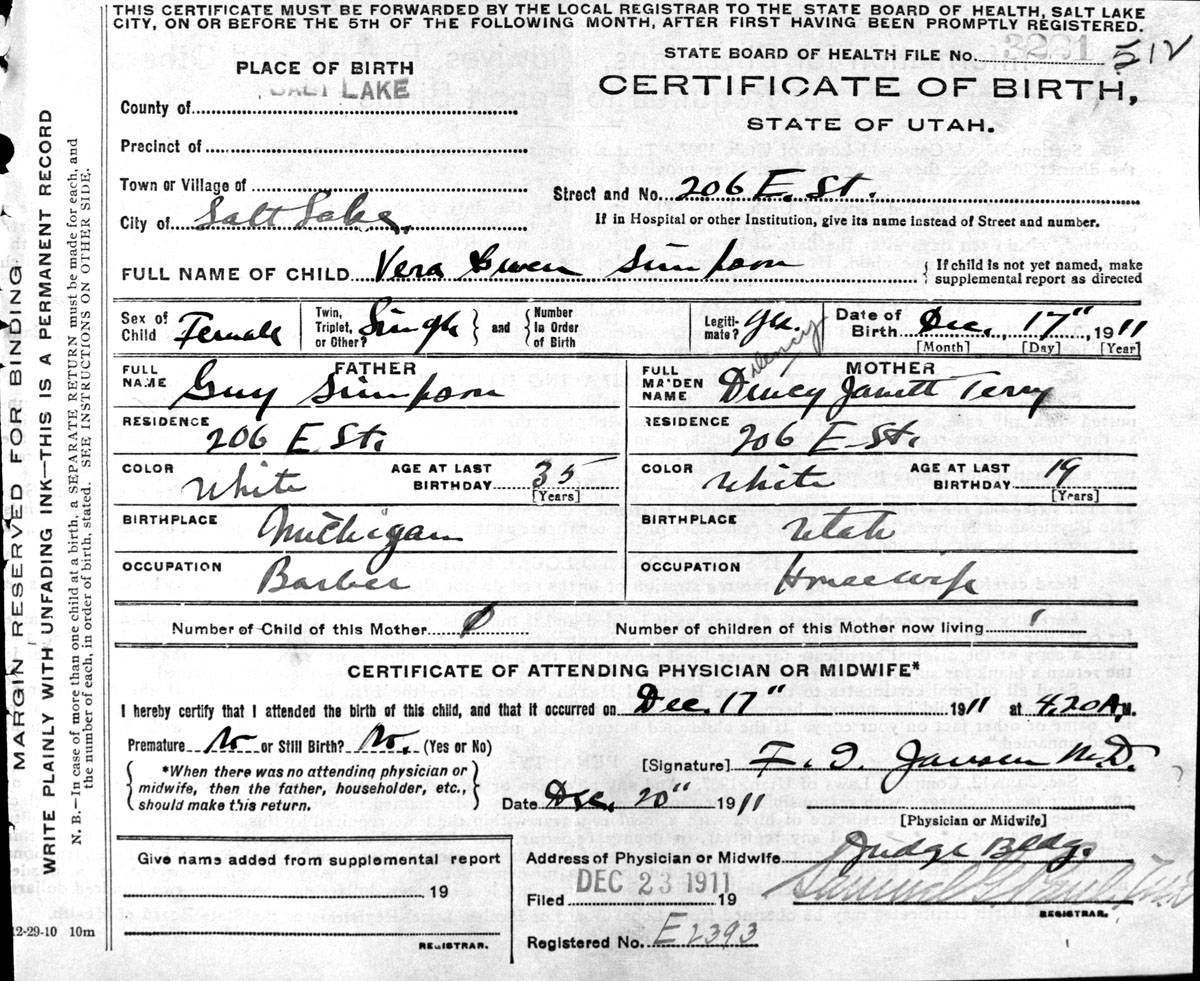 THIS CERTIFICATE MUST BE FORWARDED BY THE LOCAL REGISTRAR TO THE STATE BOARD OF HEALTH, SALT LAKE
CITY, ON OR BEFORE THE 5TH OF THE FOLLOWING MONTH, AFTER FIRST HAVING BEEN PROMPTLY REGISTERED.
MARGIN RESERVED FOR BINDING
WRITE PLAINLY WITH UNFADING INK—THIS IS A PERMANENT RECORD
N. B.—In case of more than one child at a birth, a SEPARATE RETURN must be made for each, and
the number of each, in order of birth, stated. SEE INSTRUCTIONS ON OTHER SIDE.
STATE BOARD OF HEALTH FILE No. 3291 512
PLACE OF BIRTH
CERTIFICATE OF BIRTH,
STATE OF UTAH.
County of SALT LAKE
Precinct of
Town or Village of
Street and No. 206 E. St.
City of Salt Lake.
If in Hospital or other Institution, give its name instead of Street and number.
FULL NAME OF CHILD Vera Gwen Simpson
{ If child is not yet named, make
supplemental report as directed
Sex of Child Female
Twin, Triplet, or Other? Single } and { Number In Order of Birth
Legiti-mate? yes.
Date of Birth Dec. 17" 1911
[Month] [Day] [Year]
FATHER
FULL NAME Guy Simpson
RESIDENCE 206 E St.
COLOR White AGE AT LAST BIRTHDAY 35 [Years]
BIRTHPLACE Michigan
OCCUPATION Barber
MOTHER
FULL MAIDEN NAME Janett Terry
RESIDENCE 206 E St.
COLOR White AGE AT LAST BIRTHDAY 19 [Years]
BIRTHPLACE Utah
OCCUPATION Housewife
Number of Child of this Mother
Number of children of this Mother now living 1
CERTIFICATE OF ATTENDING PHYSICIAN OR MIDWIFE*
I hereby certify that I attended the birth of this child, and that it occurred on Dec. 17" 1911 at 4,20 A.M.
Premature No or Still Birth? No. (Yes or No)
{ *When there was no attending physician or
midwife, then the father, householder, etc.,
should make this return. }
[Signature] M.D.
Date Dec. 20" 1911
[Physician or Midwife]
Give name added from supplemental report
19
REGISTRAR.
Address of Physician or Midwife Judge Bldg.
Filed DEC 23 1911 19
REGISTRAR.
Registered No. E 2393
12-29-10 10m